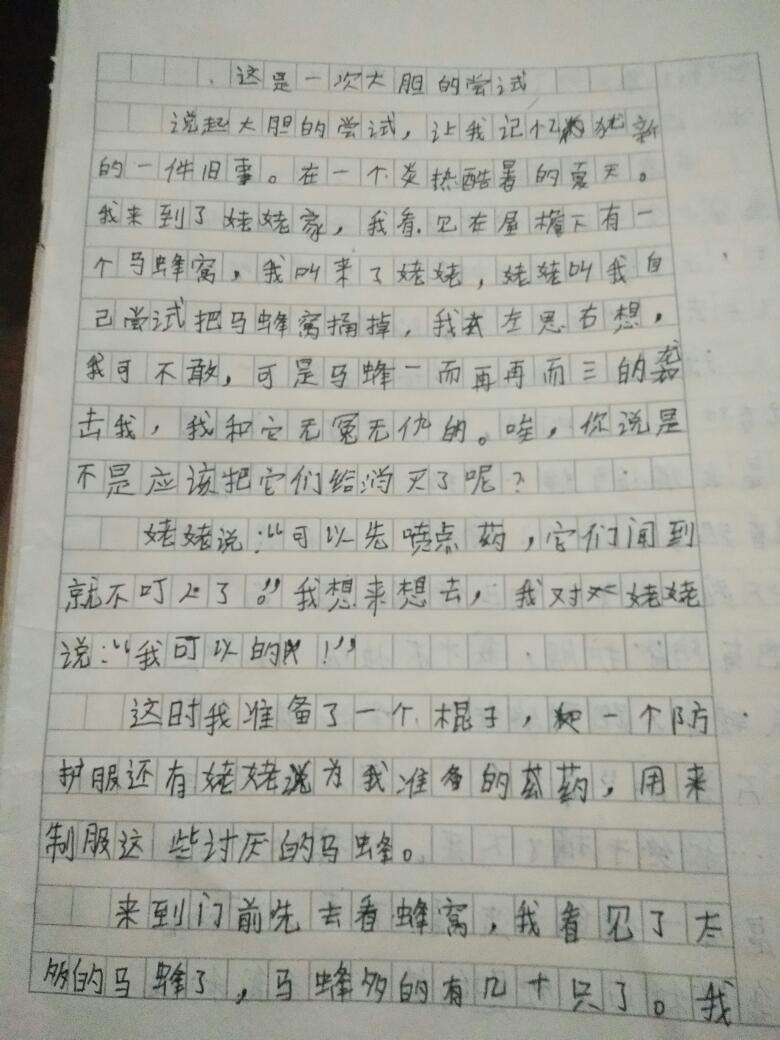 这是一次大胆的尝试
说起大胆的尝试，让我记忆犹新
的一件旧事。在一个炎热酷暑的夏天。
我来到了姥姥家，我看见在屋檐下有一
个马蜂窝，我叫来了姥姥，姥姥叫我自
己尝试把马蜂窝捅掉，我左思右想，
我可不敢，可是马蜂一而再再而三的袭
击我，我和它无冤无仇的。唉，你说是
不是应该把它们给消灭了呢？
姥姥说：“可以先喷点药，它们闻到
就不叮人了。”我想来想去，我对姥姥
说：“我可以的！”
这时我准备了一个棍子，一个防
护服还有姥姥为我准备的药，用来
制服这些讨厌的马蜂。
来到门前先去看蜂窝，我看见了太
多的马蜂了，马蜂多的有几十只了。我